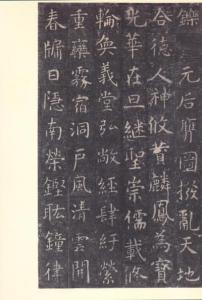 鑠元后膺圖撥亂天地
合德人神攸贊麟鳳為寶
光華在旦繼聖崇儒載脩
輪奐義堂弘敞經肆紆縈
重欒霧宿洞戶風清雲開
春牖日隱南榮鏗耾鐘律